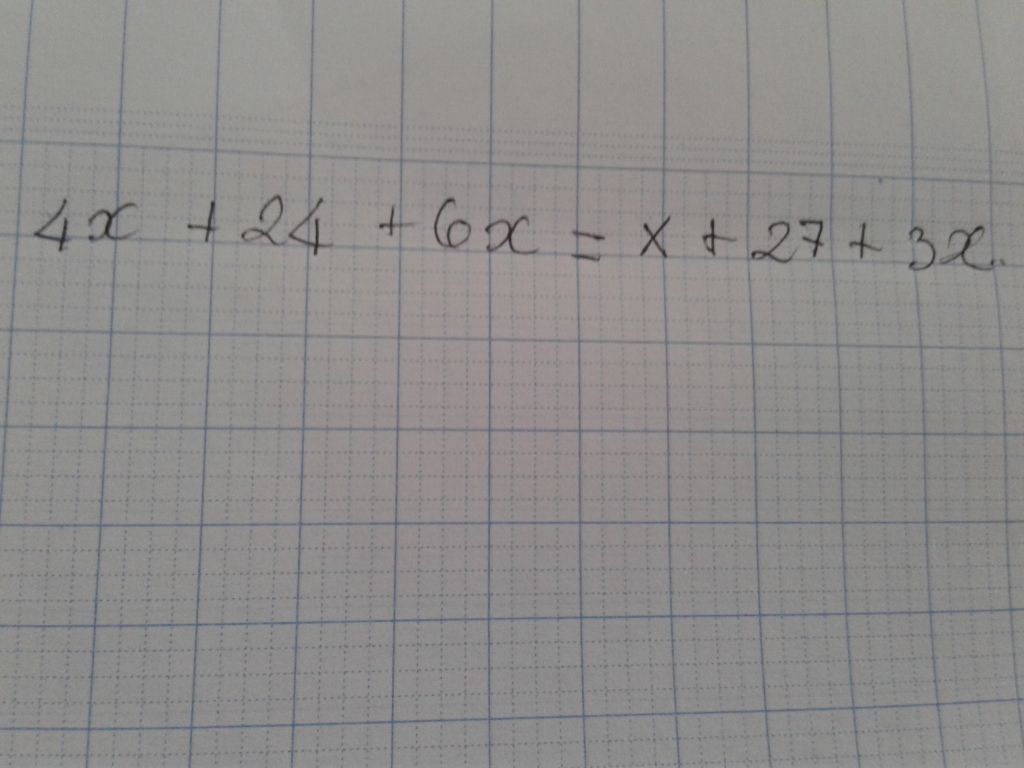 4x + 24 + 6x = x + 27 + 3x.